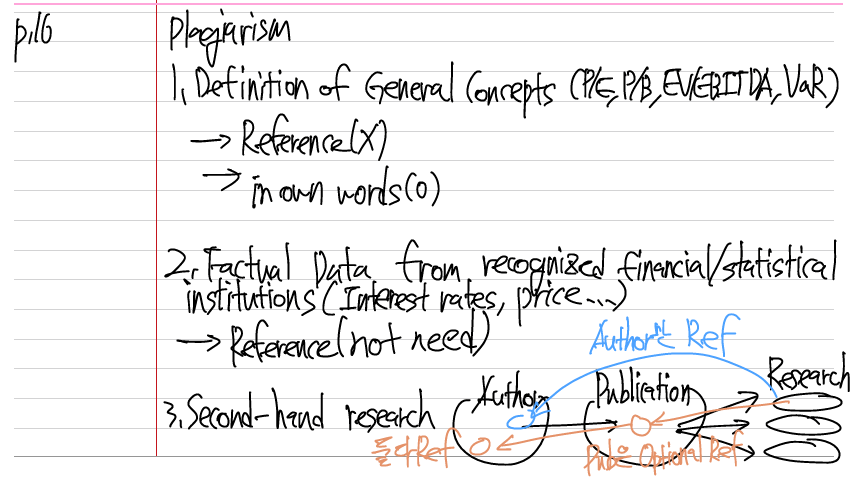 p.16
Plagiarism
1. Definition of General Concepts (P/E, P/B, EV/EBITDA, VaR)
→ Reference(X)
→ in own words(O)
2. Factual Data from recognized financial/statistical
institutions (Interest rates, price...)
→ Reference(not need)
Author만 Ref
3. Second-hand research
Author
Publication
Research
둘다Ref
Pub은 Optional Ref